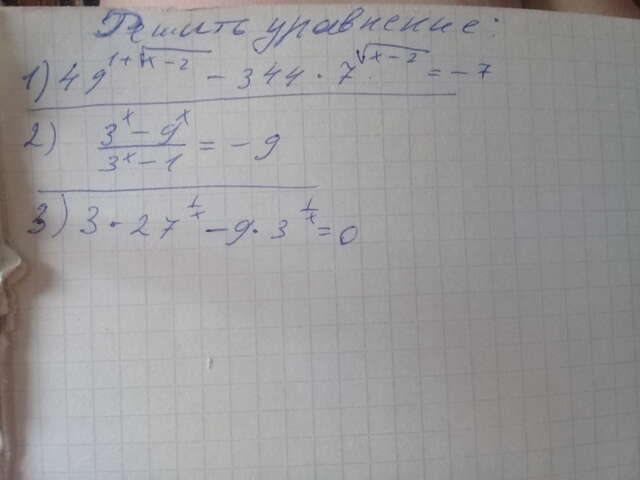 Решить уравнение:
1) 49^{1+√(x-2)} - 344 · 7^{√(x-2)} = -7
2) \frac{3^x - 9^x}{3^x - 1} = -9
3) 3 · 27^x - 9 · 3^x = 0